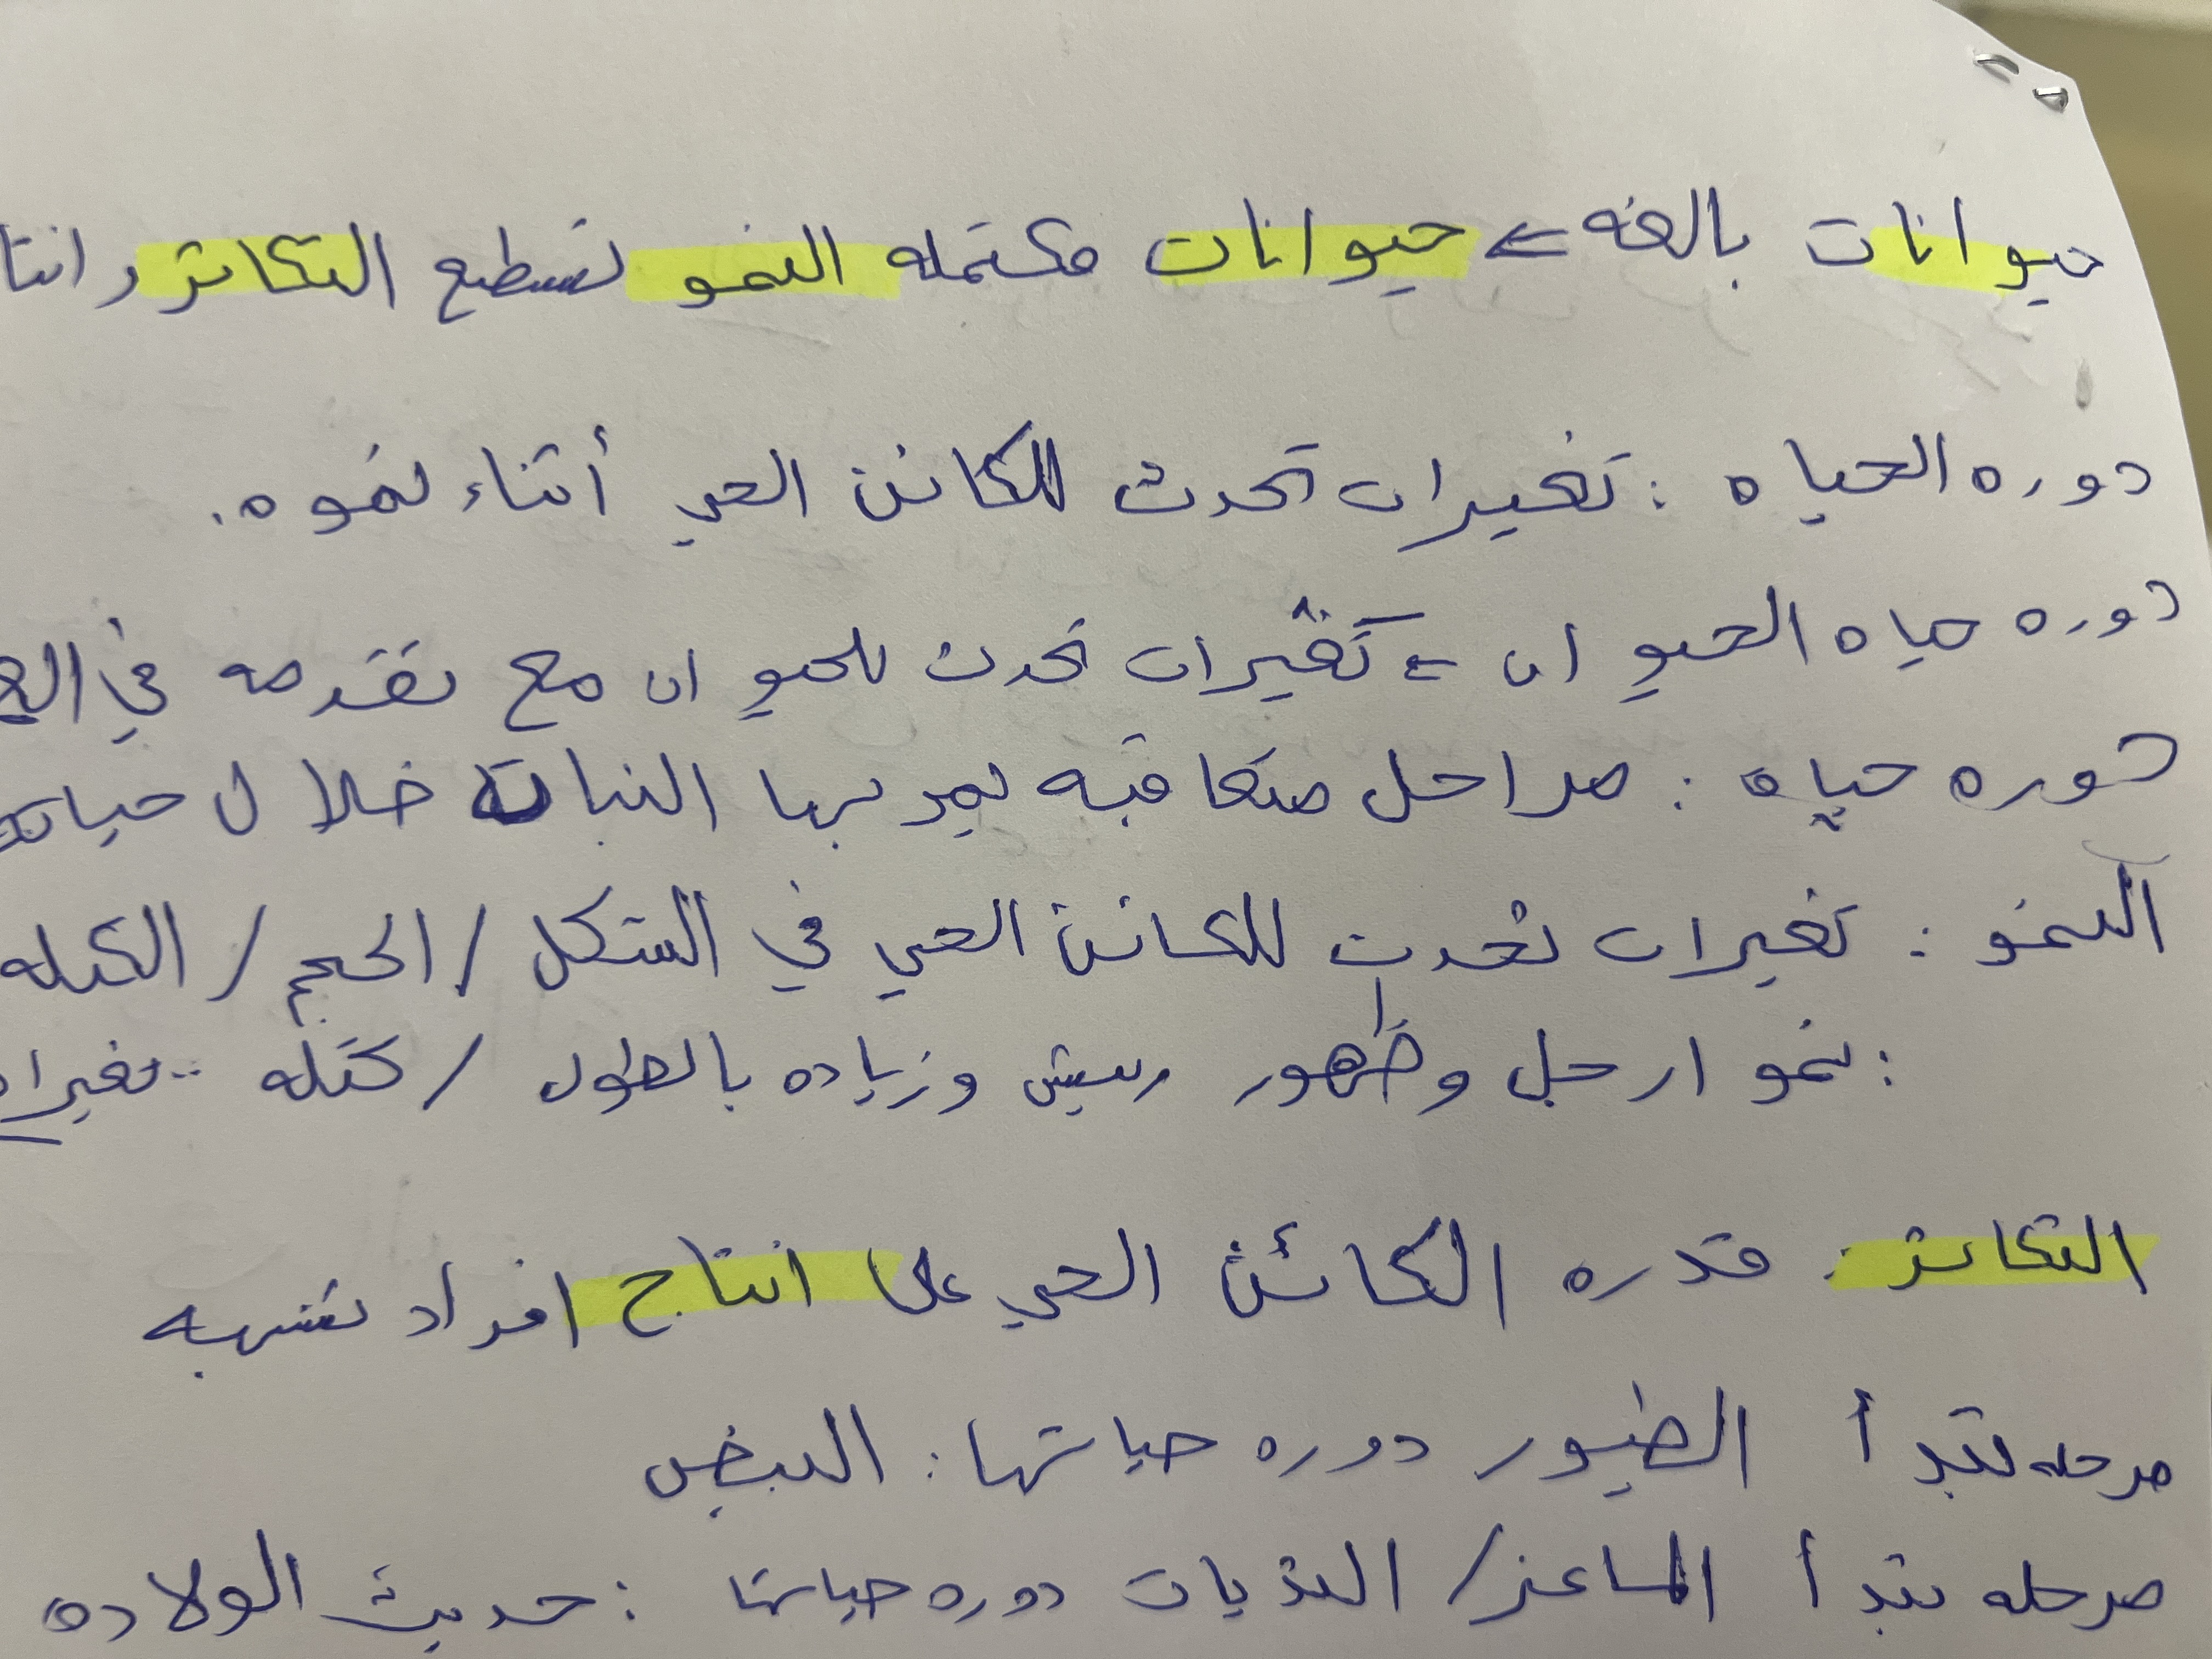 حيوانات بالغه ⇐ حيوانات مكتمله النمو تسطيع التكاثر وانتا
دوره الحياه : تغيرات تحدث للكائن الحي أثناء نموه .
دوره حياه الحيوان ⇐ تغيرات تحدث للحيوان مع تقدمه في الع
دوره حياه : مراحل متعاقبه يمر بها النبات خلال حياته
النمو : تغيرات تحدث للكائن الحي في الشكل / الحجم / الكتله
: نمو ارجل وظهور ريش وزياده بالطول / كتله .. تغيرا
التكاثر : قدره الكائن الحي على انتاج افراد تشبهه
مرحله تبدأ الطيور دوره حياتها : البيض
مرحله تبدأ الماعز / الثديات دوره حياتها : حديث الولاده